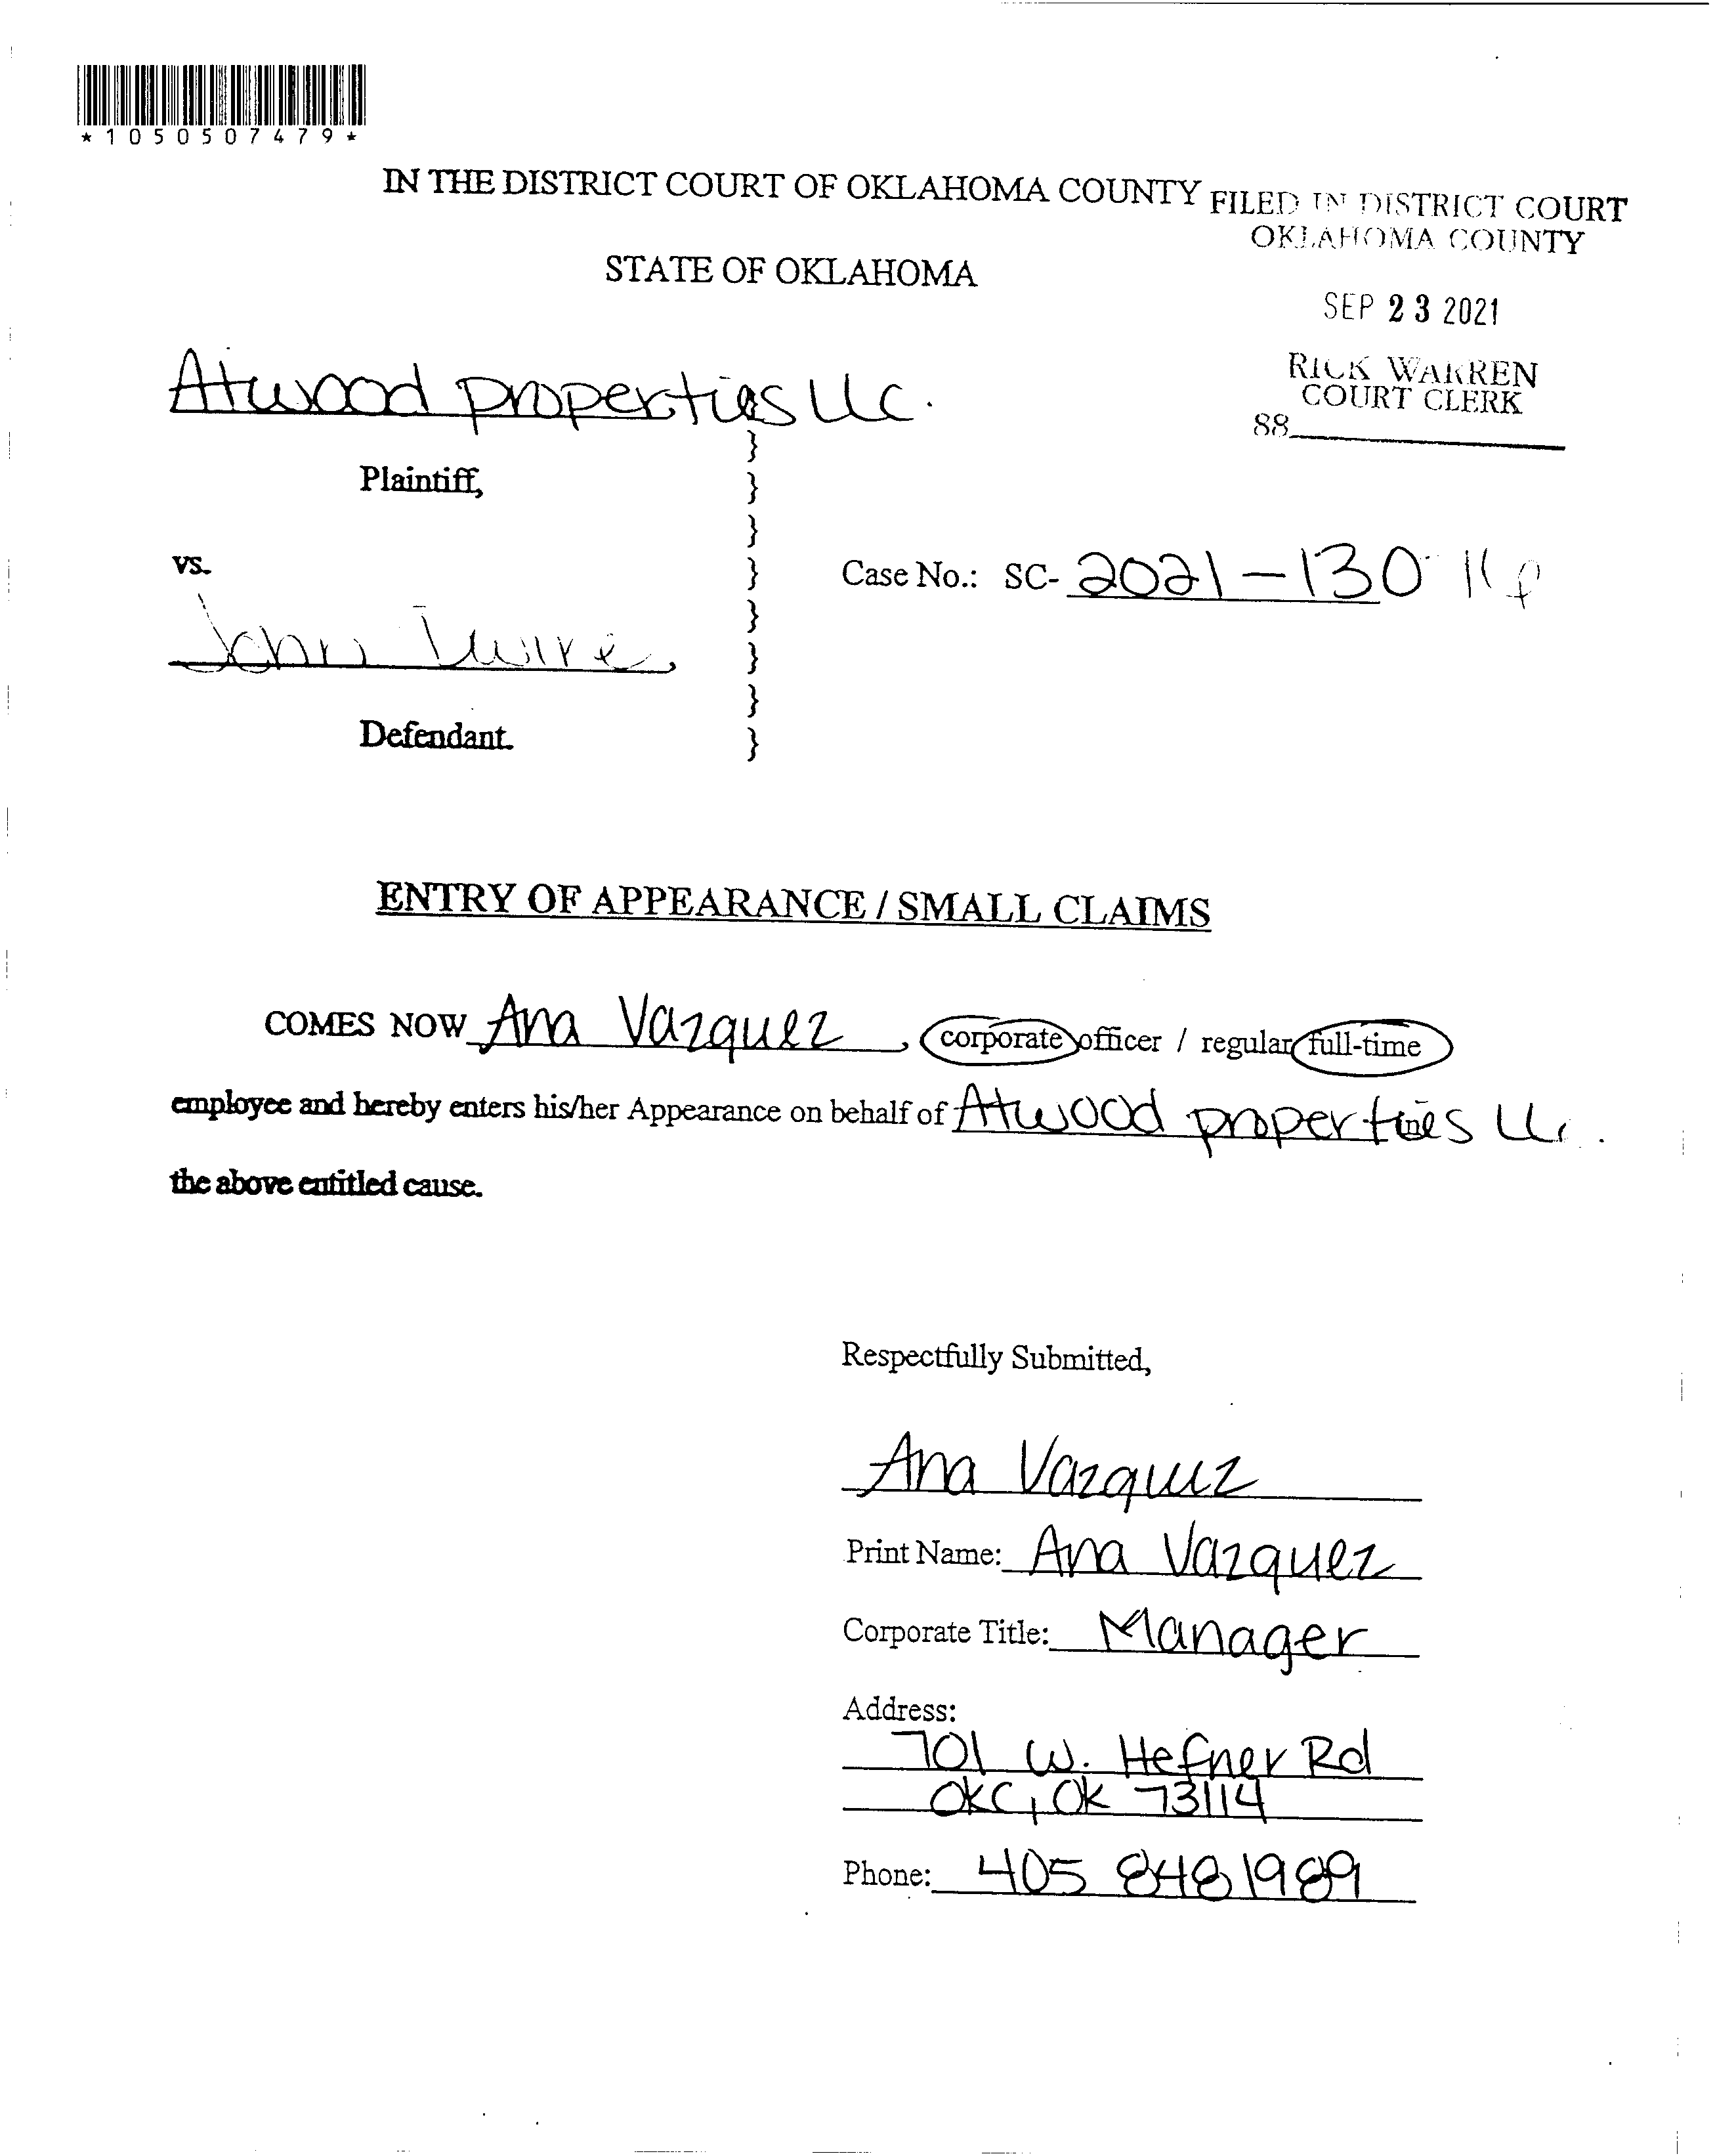 *1050507479*
IN THE DISTRICT COURT OF OKLAHOMA COUNTY
FILED IN DISTRICT COURT
OKLAHOMA COUNTY
STATE OF OKLAHOMA
SEP 23 2021
RICK WARREN
COURT CLERK
88
Atwood properties llc.
Plaintiff,
vs.
Case No.: SC- 2021-130
John
Defendant.
ENTRY OF APPEARANCE / SMALL CLAIMS
COMES NOW Ana Vazquez, corporate officer / regular full-time
employee and hereby enters his/her Appearance on behalf of Atwood properties llc.
the above entitled cause.
Respectfully Submitted,
Ana Vazquez
Print Name: Ana Vazquez
Corporate Title: Manager
Address:
701 W. Hefner Rd
OKC, OK 73114
Phone: 405 848 1989